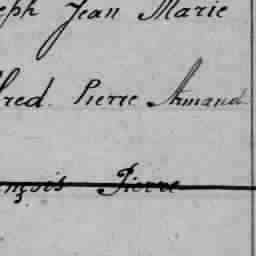 eph Jean Marie
fred Pierre Armand
ançois Pierre